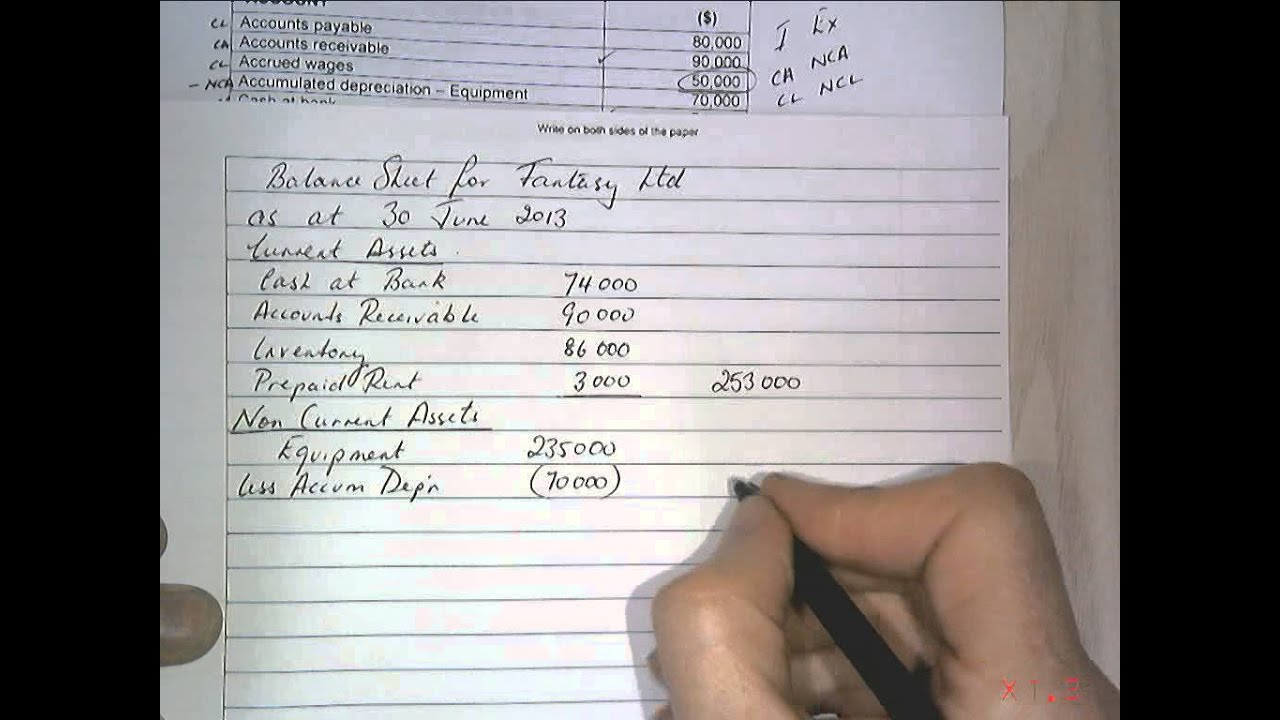 ACCOUNT ($)
CL Accounts payable 80,000 I Ex
CA Accounts receivable 90,000 CA NCA
CL Accrued wages 50,000 CL NCL
- NCA Accumulated depreciation – Equipment 70,000
Cash at bank
Write on both sides of the paper
Balance Sheet for Fantasy Ltd
as at 30 June 2013
Current Assets.
Cash at Bank 74 000
Accounts Receivable 90 000
Inventory 86 000
Prepaid Rent 3 000 253 000
Non Current Assets
Equipment 235000
less Accum Dep'n (70 000)